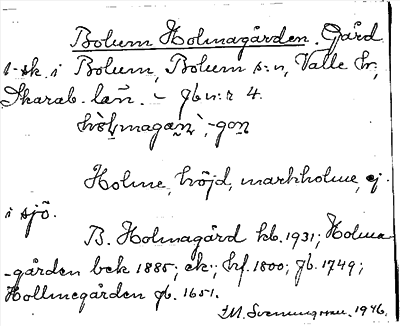 Bolum Holmagården. Gård
i sk. i Bolum, Bolum s:n, Valle hr,
Skarab. län. - jb n:r 4.
Holme, höjd, markholme, ej
i sjö.
B. Holmagård kb. 1931; Holma-
-gården bek 1885; ek.; hf. 1800; jb. 1749;
Hollmegården jb. 1651.
I.M. Svenningsson. 1946.